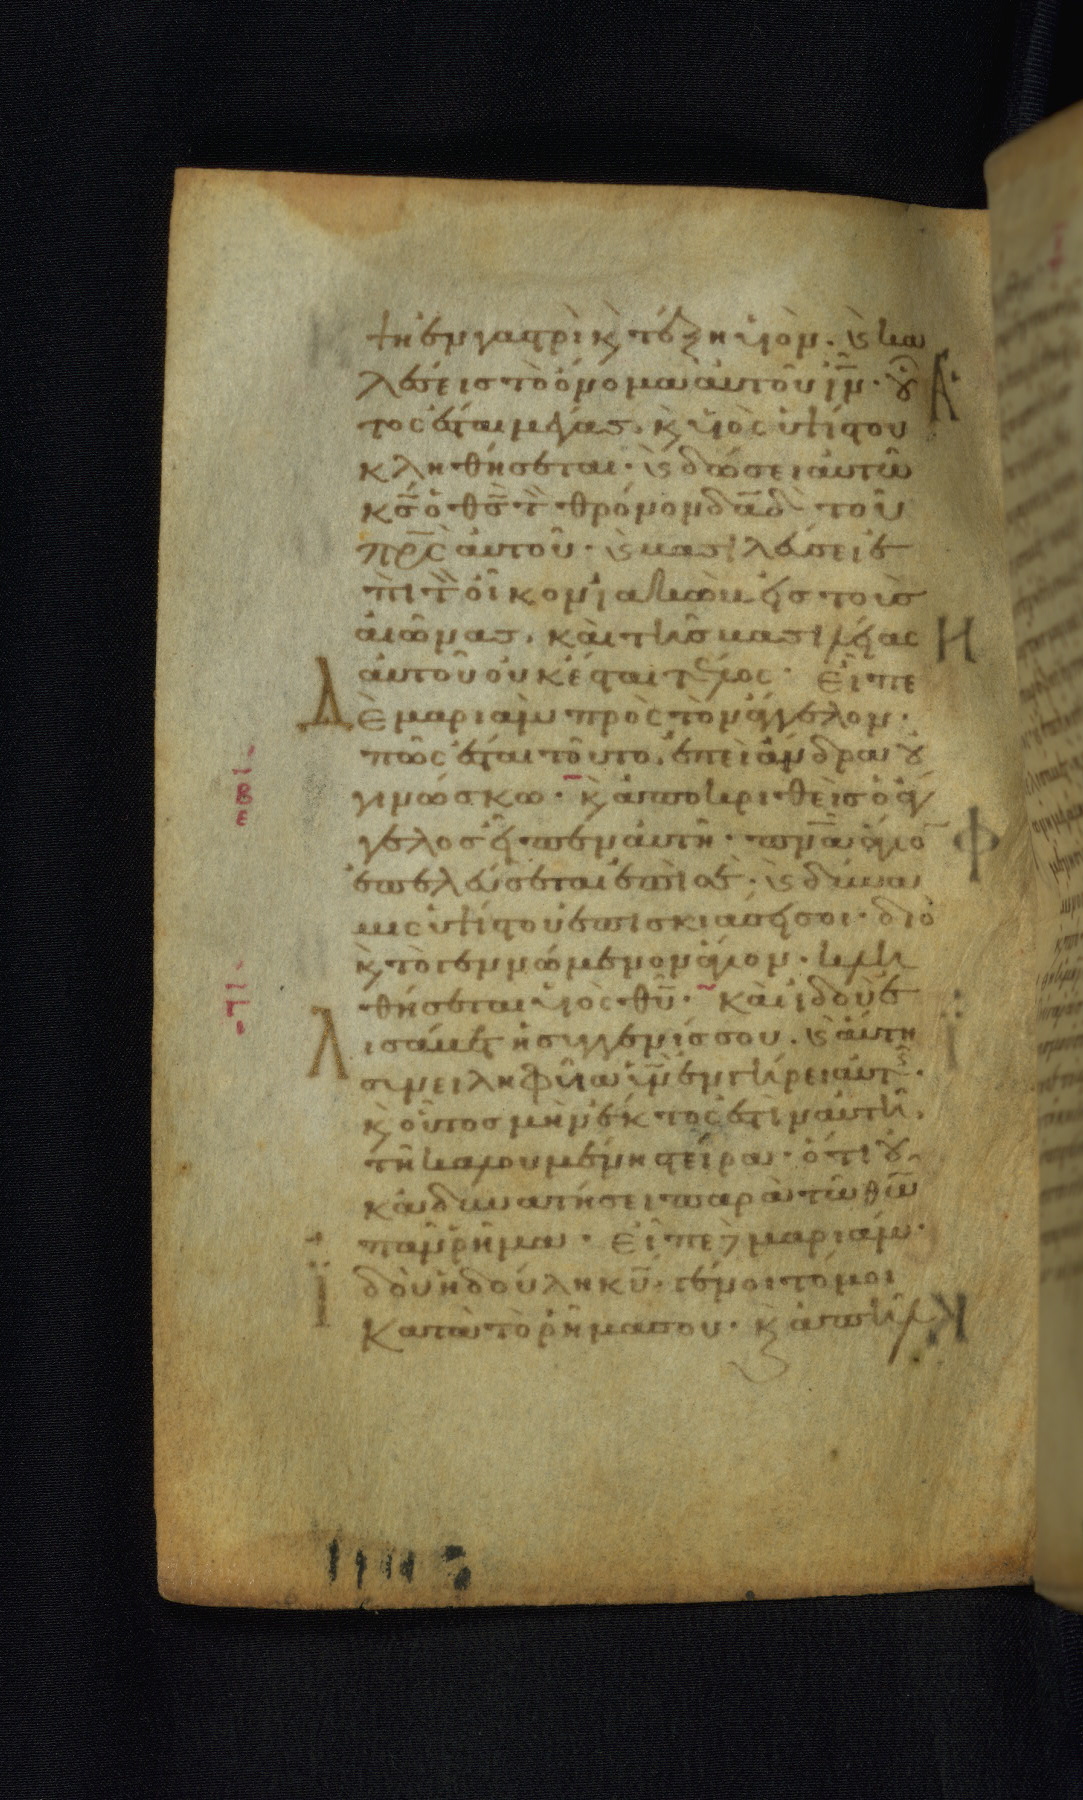 ψη ἐν γαστρὶ κ(αὶ) τέξη υἱὸν· κ(αὶ) κα
λέσεις τὸ ὄνομα αὐτοῦ ἰν̅· οὗ
τος ἔσται μέγας. κ(αὶ) υἱὸς ὑψίστου
κληθήσεται· κ(αὶ) δώσει αὐτῶ
κ̅ς̅ ὁ θ̅ς̅ τὸν θρόνον δ̅α̅δ̅ τοῦ
π̅ρ̅ς̅ αὐτοῦ· κ(αὶ) βασιλεύσει ἐ
πὶ τὸν οἶκον ἰακὼβ εἰς τοὺς
αἰῶνας. καὶ τῆς βασιλείας
αὐτοῦ οὐκ ἔσται τέλος· Εἶπε
Δὲ μαριὰμ πρὸς τὸν ἄγγελον·
πῶς ἔσται τοῦτο. ἐπεὶ ἄνδρα οὐ
γινώσκω· κ(αὶ) ἀποκριθεὶς ὁ ἄγ
γελος εἶπεν αὐτῆ· π̅ν̅α̅ ἅγιο̅
ἐπελεύσεται ἐπὶ σέ· κ(αὶ) δύνα
μις ὑψίστου ἐπισκιάσει σοι· διὸ
κ(αὶ) τὸ γεννώμενον ἅγιον· κλη
θήσεται υἱὸς θ̅υ̅· Καὶ ἰδοὺ ἐ
λισάβετ ἡ συγγενίς σου. κ(αὶ) αὐτὴ
συνειληφυῖα υἱὸν ἐν γήρει αὐτῆς·
κ(αὶ) οὗτος μὴν ἕκτος ἐστὶν αὐτῆ.
τῆ καλουμένη στείρα· ὅτι οὐ
κ ἀδυνατήσει παρὰ τῶ θ̅ω̅
πᾶν ῥῆμα· Εἶπε δὲ μαριάμ·
ἰδοὺ ἡ δούλη κ̅υ̅· γένοιτό μοι
Κατὰ τὸ ῥῆμά σου· κ(αὶ) ἀπῆλ